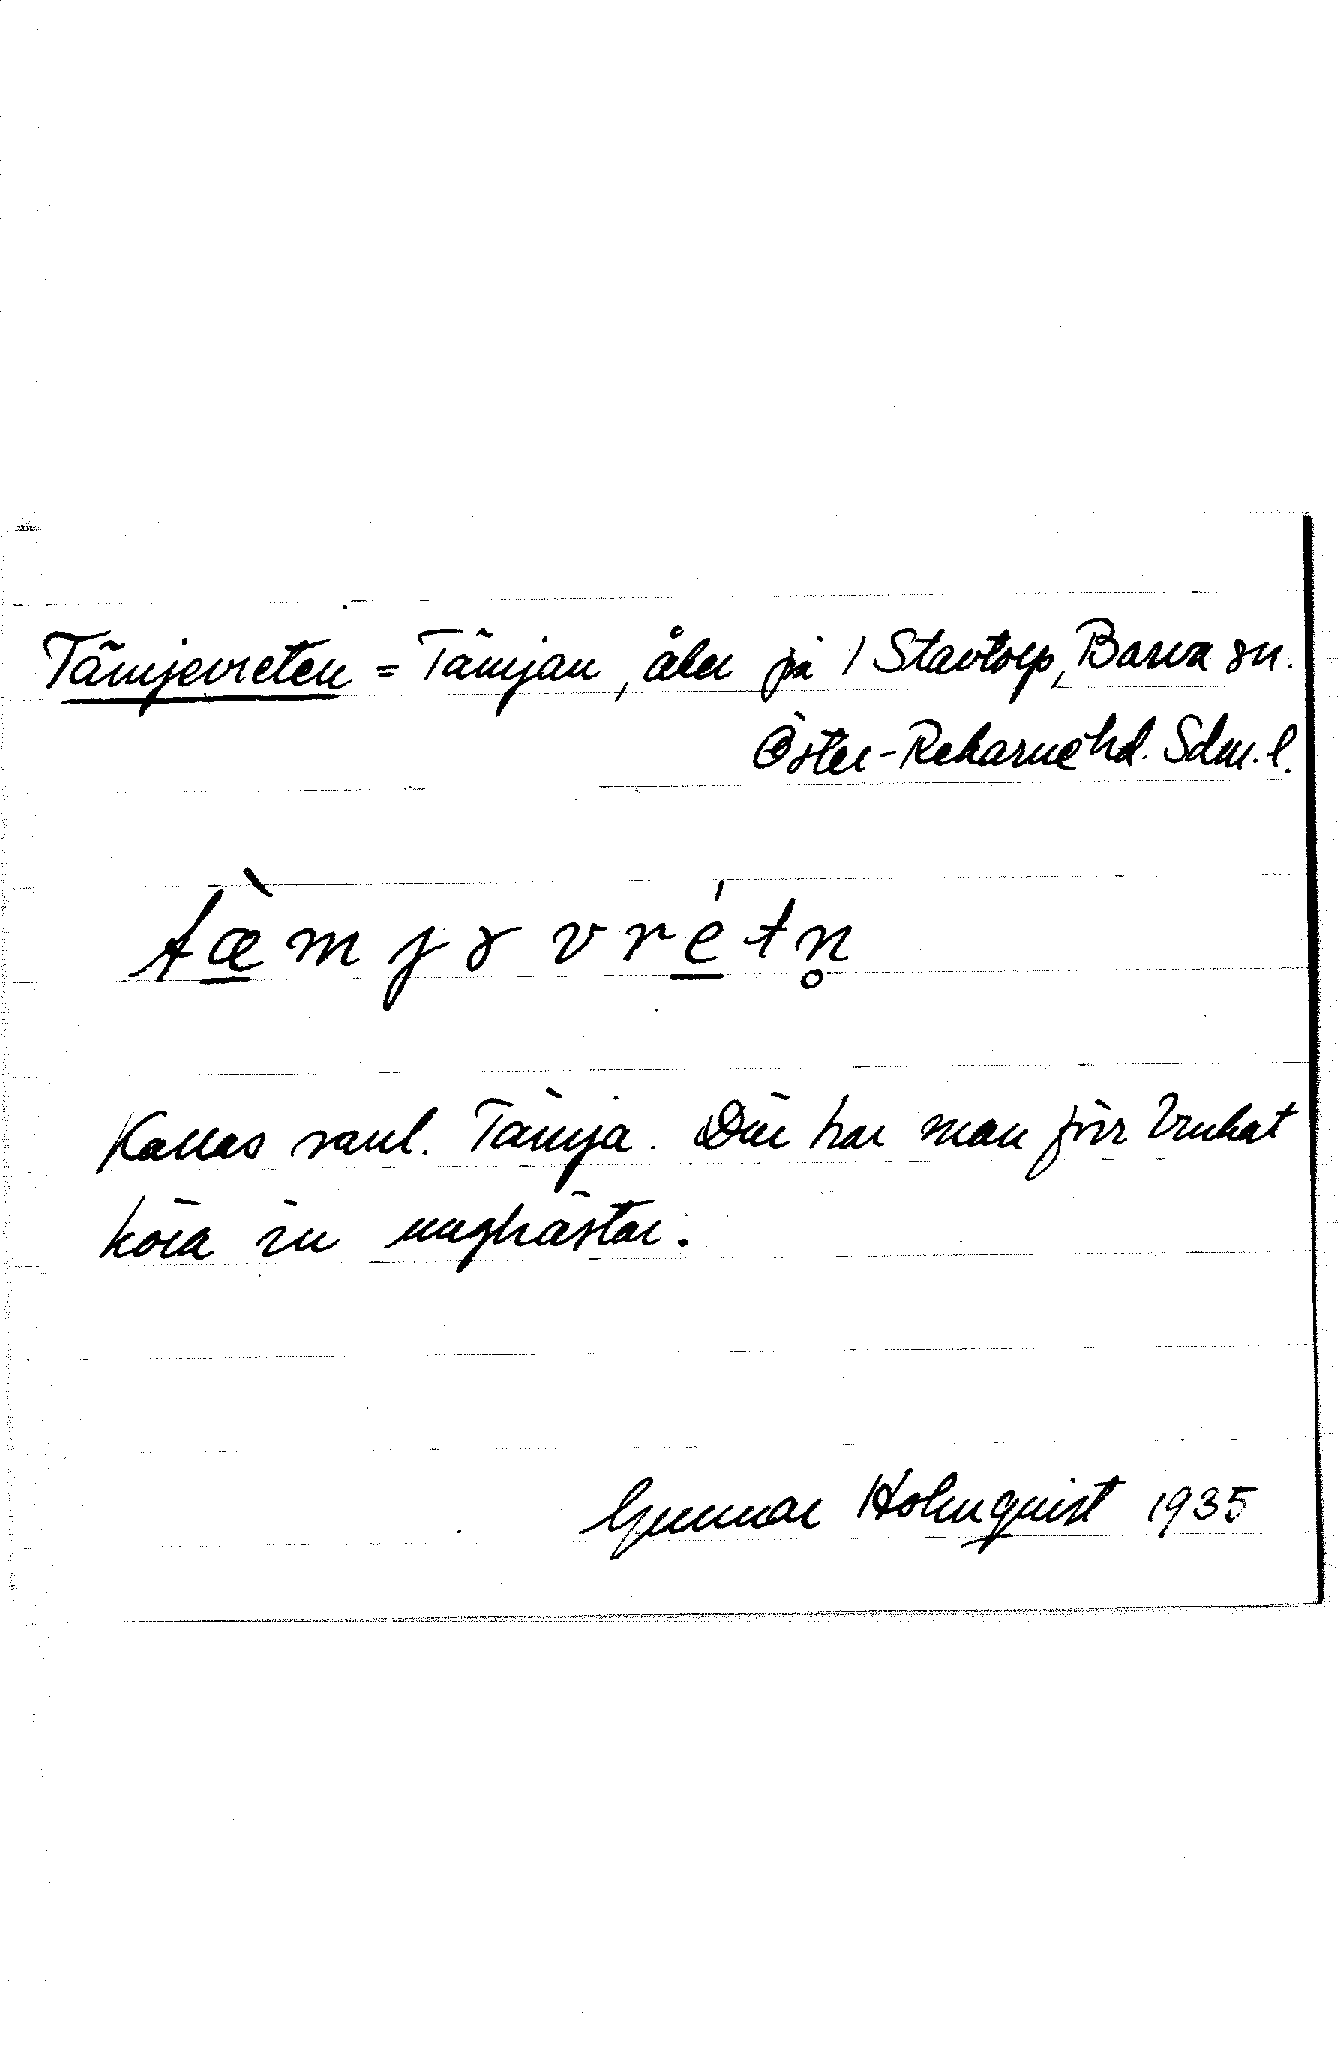 Tämjevreten = Tämjan, åker på 1 Stavtorp, Barva sn.
Öster-Rekarne hd. Sdm. l.
tæ̀mjɤvrétn̥
Kallas vanl. Tämja. Där har man förr brukat
köra in unghästar.
Gunnar Holmquist 1935